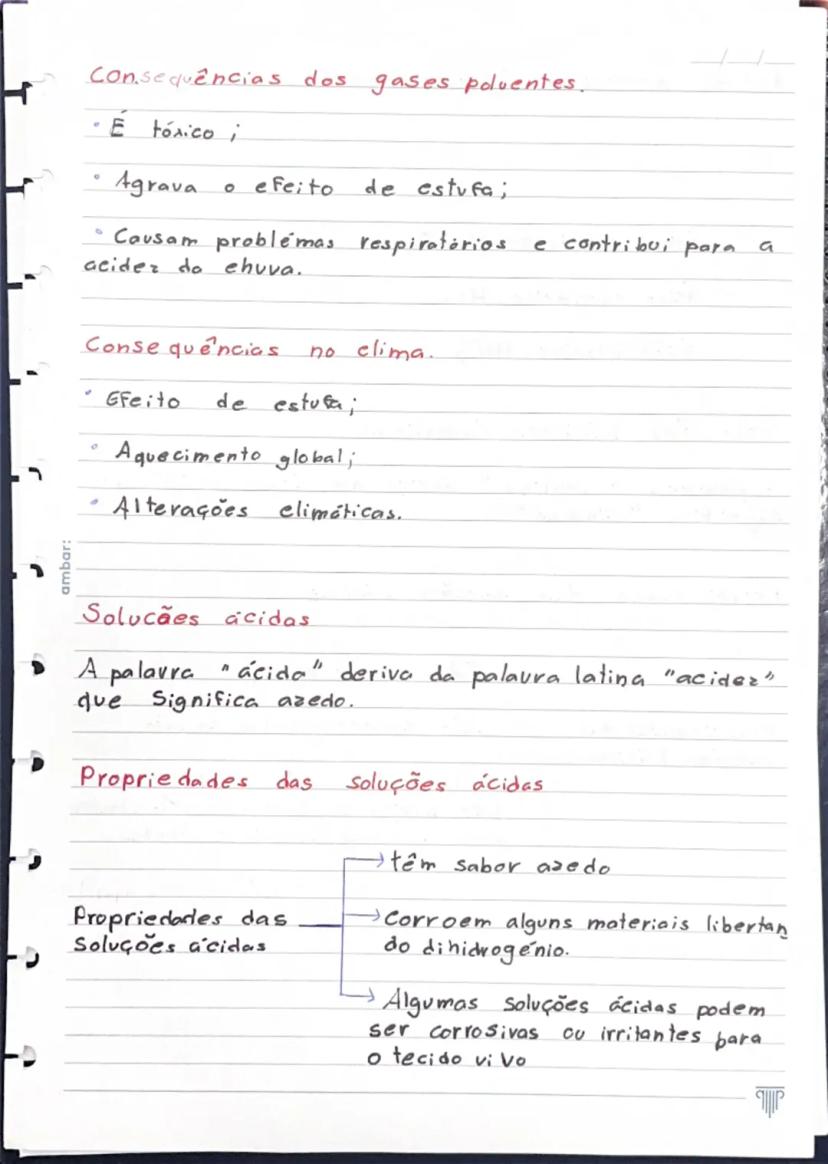 Consequências dos gases poluentes.
• É tóxico ;
• Agrava o efeito de estufa;
• Causam problémas respiratórios e contribui para a
acidez da chuva.
Consequências no clima.
• Efeito de estufa;
• Aquecimento global;
• Alterações climáticas.
ambar:
Solucães ácidas
A palavra "ácida" deriva da palavra latina "acidez"
que significa azedo.
Propriedades das soluções ácidas
Propriedades das
Soluções ácidas
têm sabor azedo
Corroem alguns materiais libertan
do dihidrogénio.
Algumas soluções ácidas podem
ser corrosivas ou irritantes para
o tecido vivo